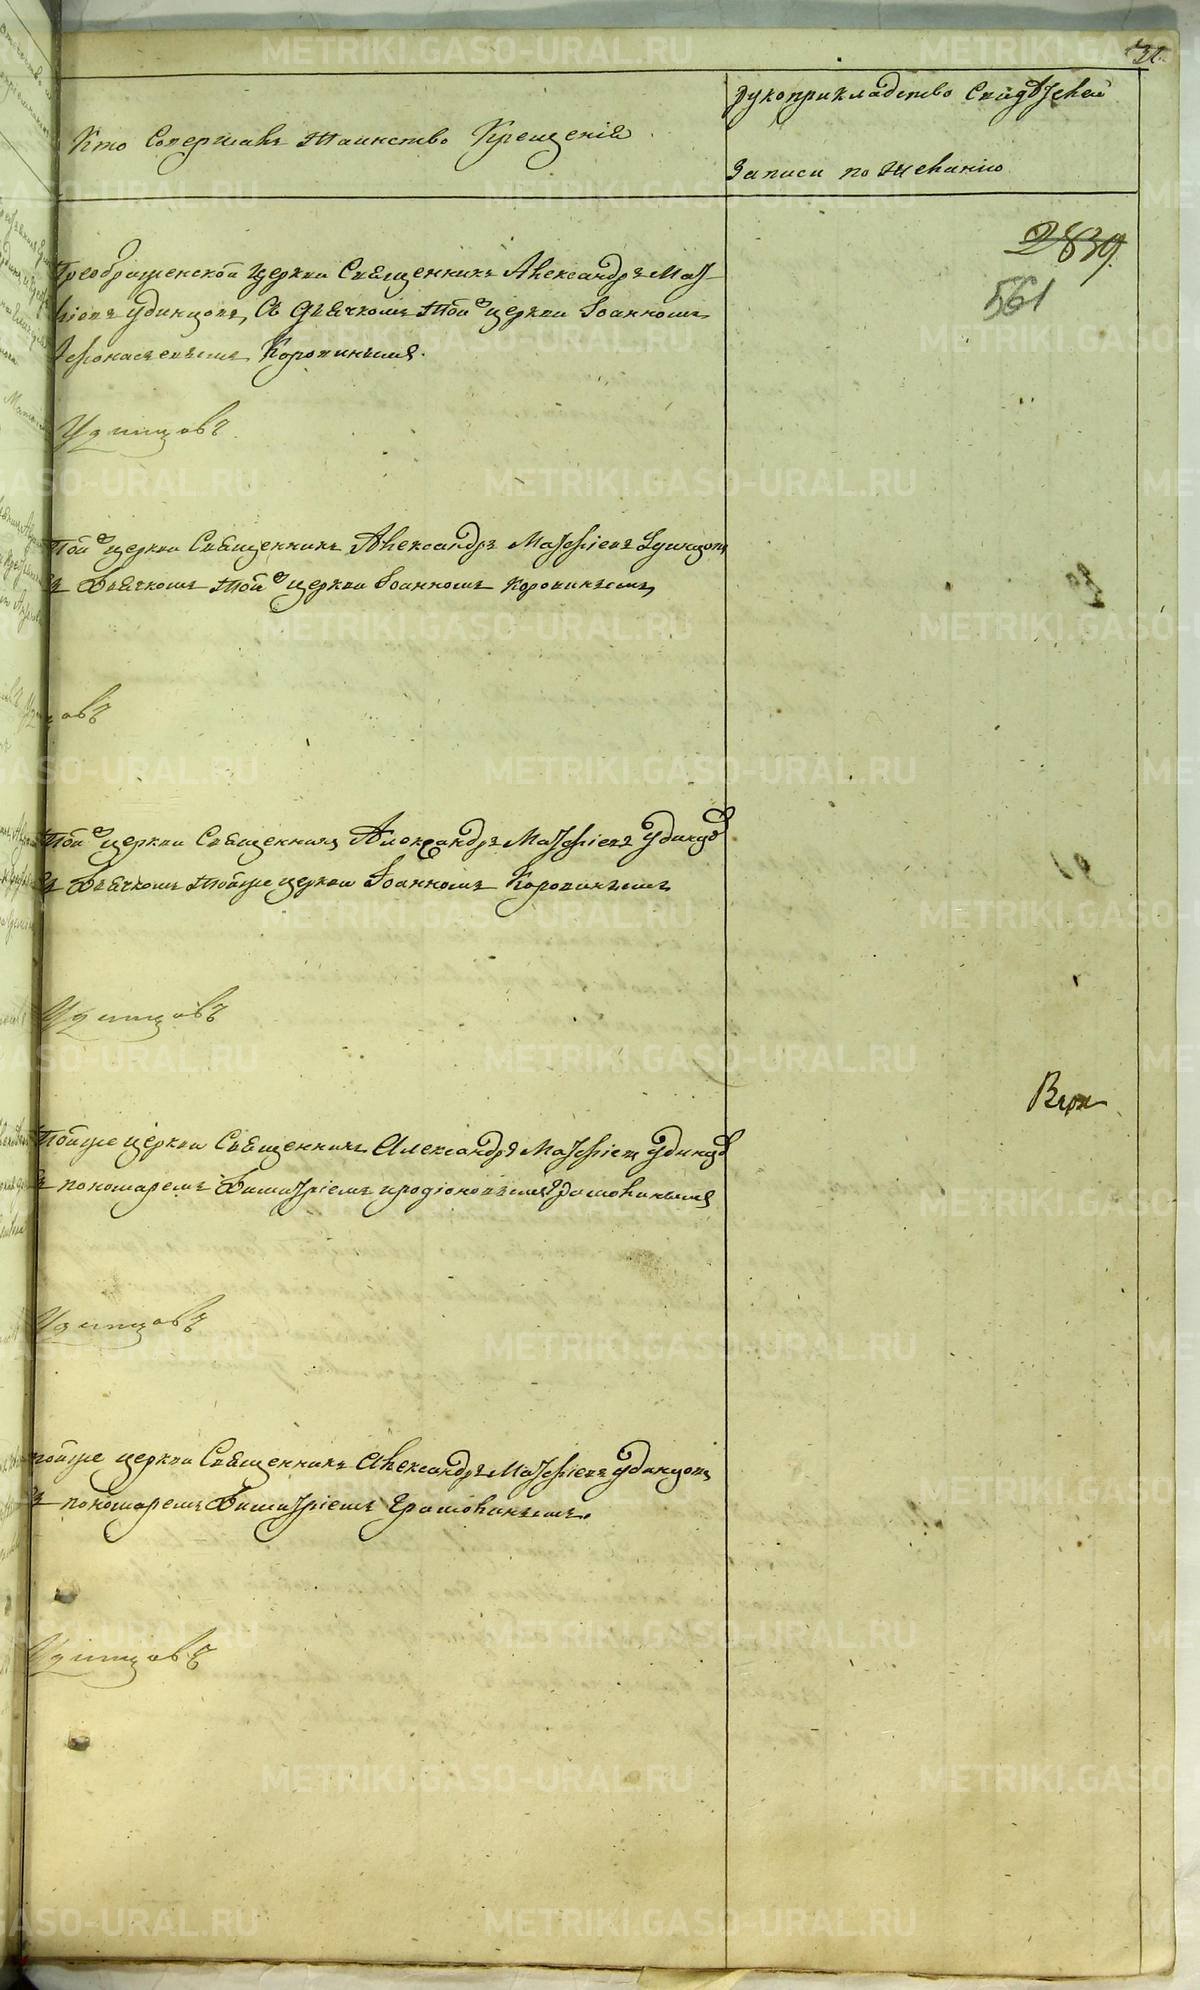 31.
Кто Совершалъ Таинство Крещенія
Рукоприкладство Свидѣтелей
Записи по желанію
2839.
561
Преображенской Церкви Священникъ Александръ Мат
ѳіевъ Удинцовъ, Съ Дьячкомъ Той же церкви Іоанномъ
Афонасьевымъ Коровинымъ.
Удинцовъ
Той же церкви Священникъ Александръ Матѳіевъ Удинцовъ
Съ Дьячкомъ Той же церкви Іоанномъ Коровинымъ
Удинцовъ
Той же церкви Священникъ Александръ Матѳіевъ Удинцовъ
Съ Дьячкомъ Тойже церкви Іоанномъ Коровинымъ
Удинцовъ
Тойже церкви Священникъ Александръ Матѳіевъ Удинцовъ
Съ пономаремъ Димитріемъ иродіоновымъ Грамолинымъ
Удинцовъ
тойже церкви Священникъ Александръ Матѳіевъ Удинцовъ
Съ пономаремъ Димитріемъ Грамолинымъ.
Удинцовъ
METRIKI.GASO-URAL.RU